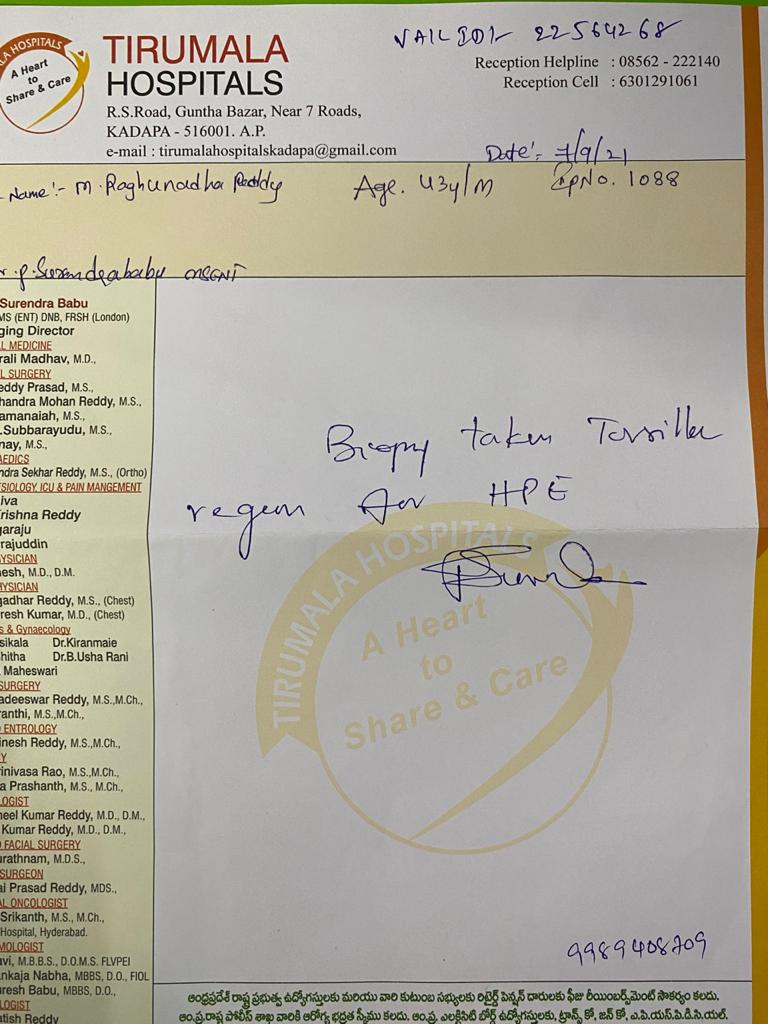 VAIL ID:- 22564268
A HOSPITALS
A Heart
to
Share & Care
TIRUMALA
HOSPITALS
R.S.Road, Guntha Bazar, Near 7 Roads,
KADAPA - 516001. A.P.
e-mail : tirumalahospitalskadapa@gmail.com
Reception Helpline : 08562 - 222140
Reception Cell : 6301291061
Date:- 7/9/21
Name:- M. Raghunadha Reddy Age. 43y/M OpNo. 1088
r. P. Surendrababu MSENT
Surendra Babu
MS (ENT) DNB, FRSH (London)
ging Director
L MEDICINE
rali Madhav, M.D.,
L SURGERY
eddy Prasad, M.S.,
handra Mohan Reddy, M.S.,
amanaiah, M.S.,
.Subbarayudu, M.S.,
nay, M.S.,
AEDICS
ndra Sekhar Reddy, M.S., (Ortho)
SIOLOGY, ICU & PAIN MANGEMENT
iva
rishna Reddy
garaju
rajuddin
YSICIAN
esh, M.D., D.M.
HYSICIAN
gadhar Reddy, M.S., (Chest)
resh Kumar, M.D., (Chest)
s & Gynaecology
sikala Dr.Kiranmaie
hitha Dr.B.Usha Rani
Maheswari
SURGERY
adeeswar Reddy, M.S.,M.Ch.,
ranthi, M.S.,M.Ch.,
ENTROLOGY
inesh Reddy, M.S.,M.Ch.,
Y
rinivasa Rao, M.S.,M.Ch.,
a Prashanth, M.S., M.Ch.,
OGIST
neel Kumar Reddy, M.D., D.M.,
Kumar Reddy, M.D., D.M.,
FACIAL SURGERY
urathnam, M.D.S.,
SURGEON
ai Prasad Reddy, MDS.,
AL ONCOLOGIST
Srikanth, M.S., M.Ch.,
Hospital, Hyderabad.
MOLOGIST
avi, M.B.B.S., D.O.M.S. FLVPEI
nkaja Nabha, MBBS, D.O., FIOL
uresh Babu, MBBS, D.O.,
LOGIST
atish Reddy
Biopsy taken Tonsillar
region for HPE
TIRUMALA HOSPITALS
A Heart
to
Share & Care
9989408709
ఆంధ్రప్రదేశ్ రాష్ట్ర ప్రభుత్వ ఉద్యోగస్తులకు మరియు వారి కుటుంబ సభ్యులకు రిటైర్డ్ పెన్షన్ దారులకు ఫీజు రీయింబర్స్‌మెంట్ సౌకర్యం కలదు.
ఆం.ప్ర.రాష్ట్ర పోలీస్ శాఖ వారికి ఆరోగ్య భద్రత స్కీము కలదు. ఆం.ప్ర. ఎలక్ట్రిసిటి బోర్డ్ ఉద్యోగస్తులకు, ట్రాన్స్ కో, జన్ కో, ఎ.పి.యస్.పి.డి.సి.యల్.